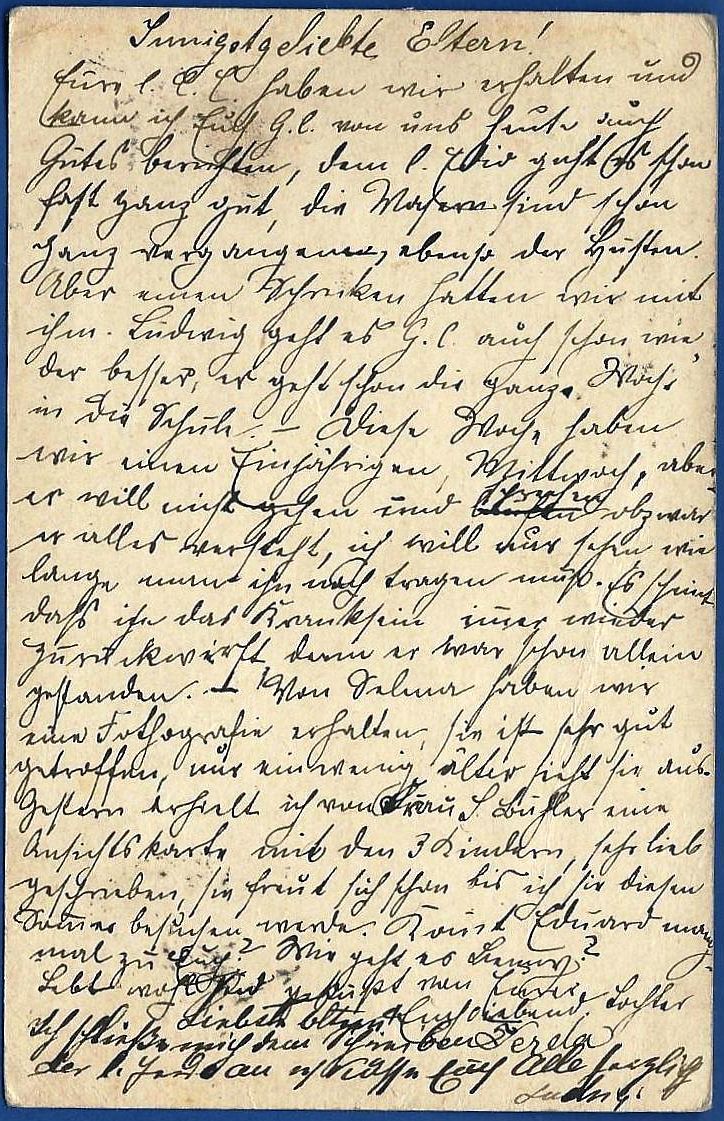 Innigstgeliebte Eltern!
Eure l. C. C. haben wir erhalten und
kann ich Euch G. l. von uns heute auch
Gutes berichten, dem l. geht es schon
fast ganz gut, die Masern sind schon
ganz vergangen, ebenso der Husten.
Aber einen Schrecken hatten wir mit
ihm. Ludwig geht es G. l. auch schon wie
der besser, er geht schon die ganze Woche
in die Schule. – Diese Woche haben
wir einen Einjährigen, Mittwoch, aber
er will nicht gehen und obzwar
er alles versteht, ich will nur sehen wie
lange man ihn noch tragen muß. Es scheint
daß ihn das Kranksein immer wieder
zurückwirft denn er war schon allein
gestanden. – Von Selma haben wir
eine Fothografie erhalten, sie ist sehr gut
getroffen, nur ein wenig älter sieht sie aus.
Gestern erhielt ich von Frau S. Bühler eine
Ansichtskarte mit den 3 Kindern, sehr lieb
geschrieben, sie freut sich schon bis ich sie diesen
Sommer besuchen werde. Kommt Eduard manch
mal zu Euch? Wie geht es
Lebt wohl und geküßt von Eurer
Liebste Eltern! Euch liebend. Tochter
Ich schließe mich dem Schreiben
der l. an u. küsse Euch Alle herzlich
Ludwig